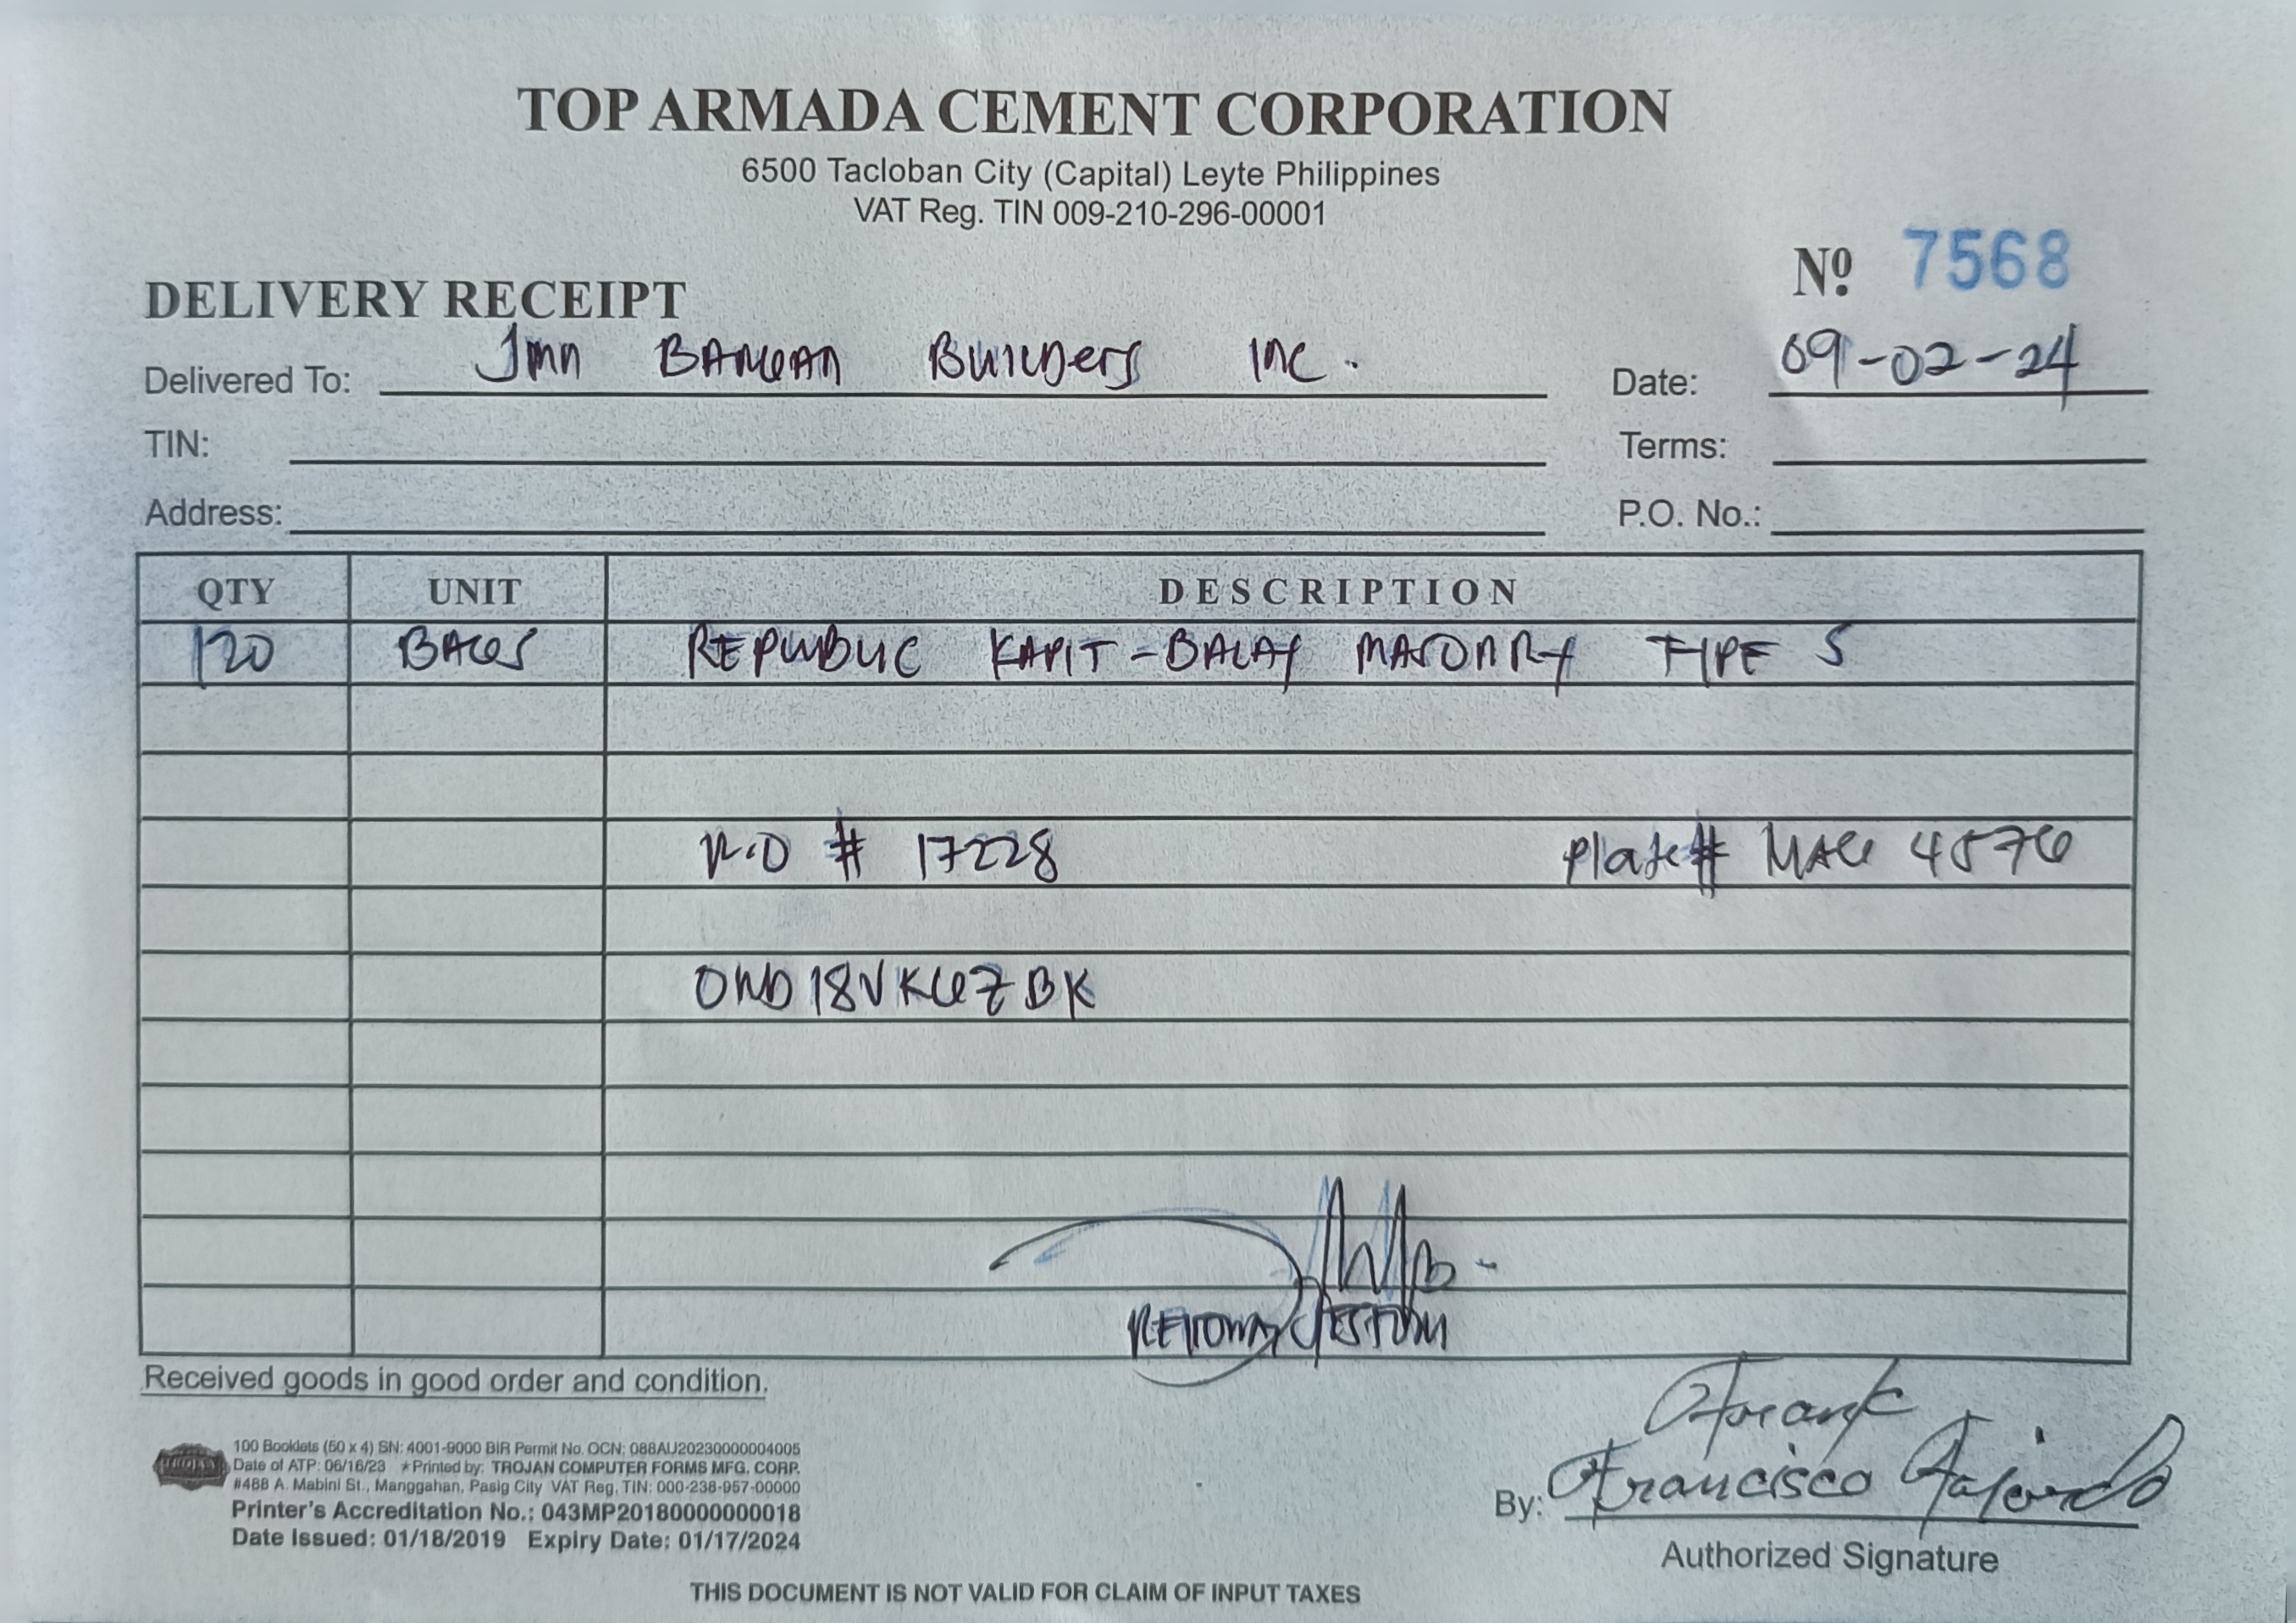 TOP ARMADA CEMENT CORPORATION
6500 Tacloban City (Capital) Leyte Philippines
VAT Reg. TIN 009-210-296-00001
Nº 7568
DELIVERY RECEIPT
Delivered To: Jmn Builders Inc.
Date: 09-02-24
TIN:
Terms:
Address:
P.O. No.:
QTY UNIT DESCRIPTION
120 BAGS REPUBLIC KAPIT-BALAY MASONRY TYPE S
# 17228 Plate# MAG 4576
Received goods in good order and condition.
100 Booklets (50 x 4) SN: 4001-9000 BIR Permit No. OCN: 088AU20230000004005
Date of ATP: 06/16/23 ★Printed by: TROJAN COMPUTER FORMS MFG. CORP.
#488 A. Mabini St., Manggahan, Pasig City VAT Reg. TIN: 000-238-957-00000
Printer's Accreditation No.: 043MP20180000000018
Date Issued: 01/18/2019 Expiry Date: 01/17/2024
By: Francisco
Authorized Signature
THIS DOCUMENT IS NOT VALID FOR CLAIM OF INPUT TAXES